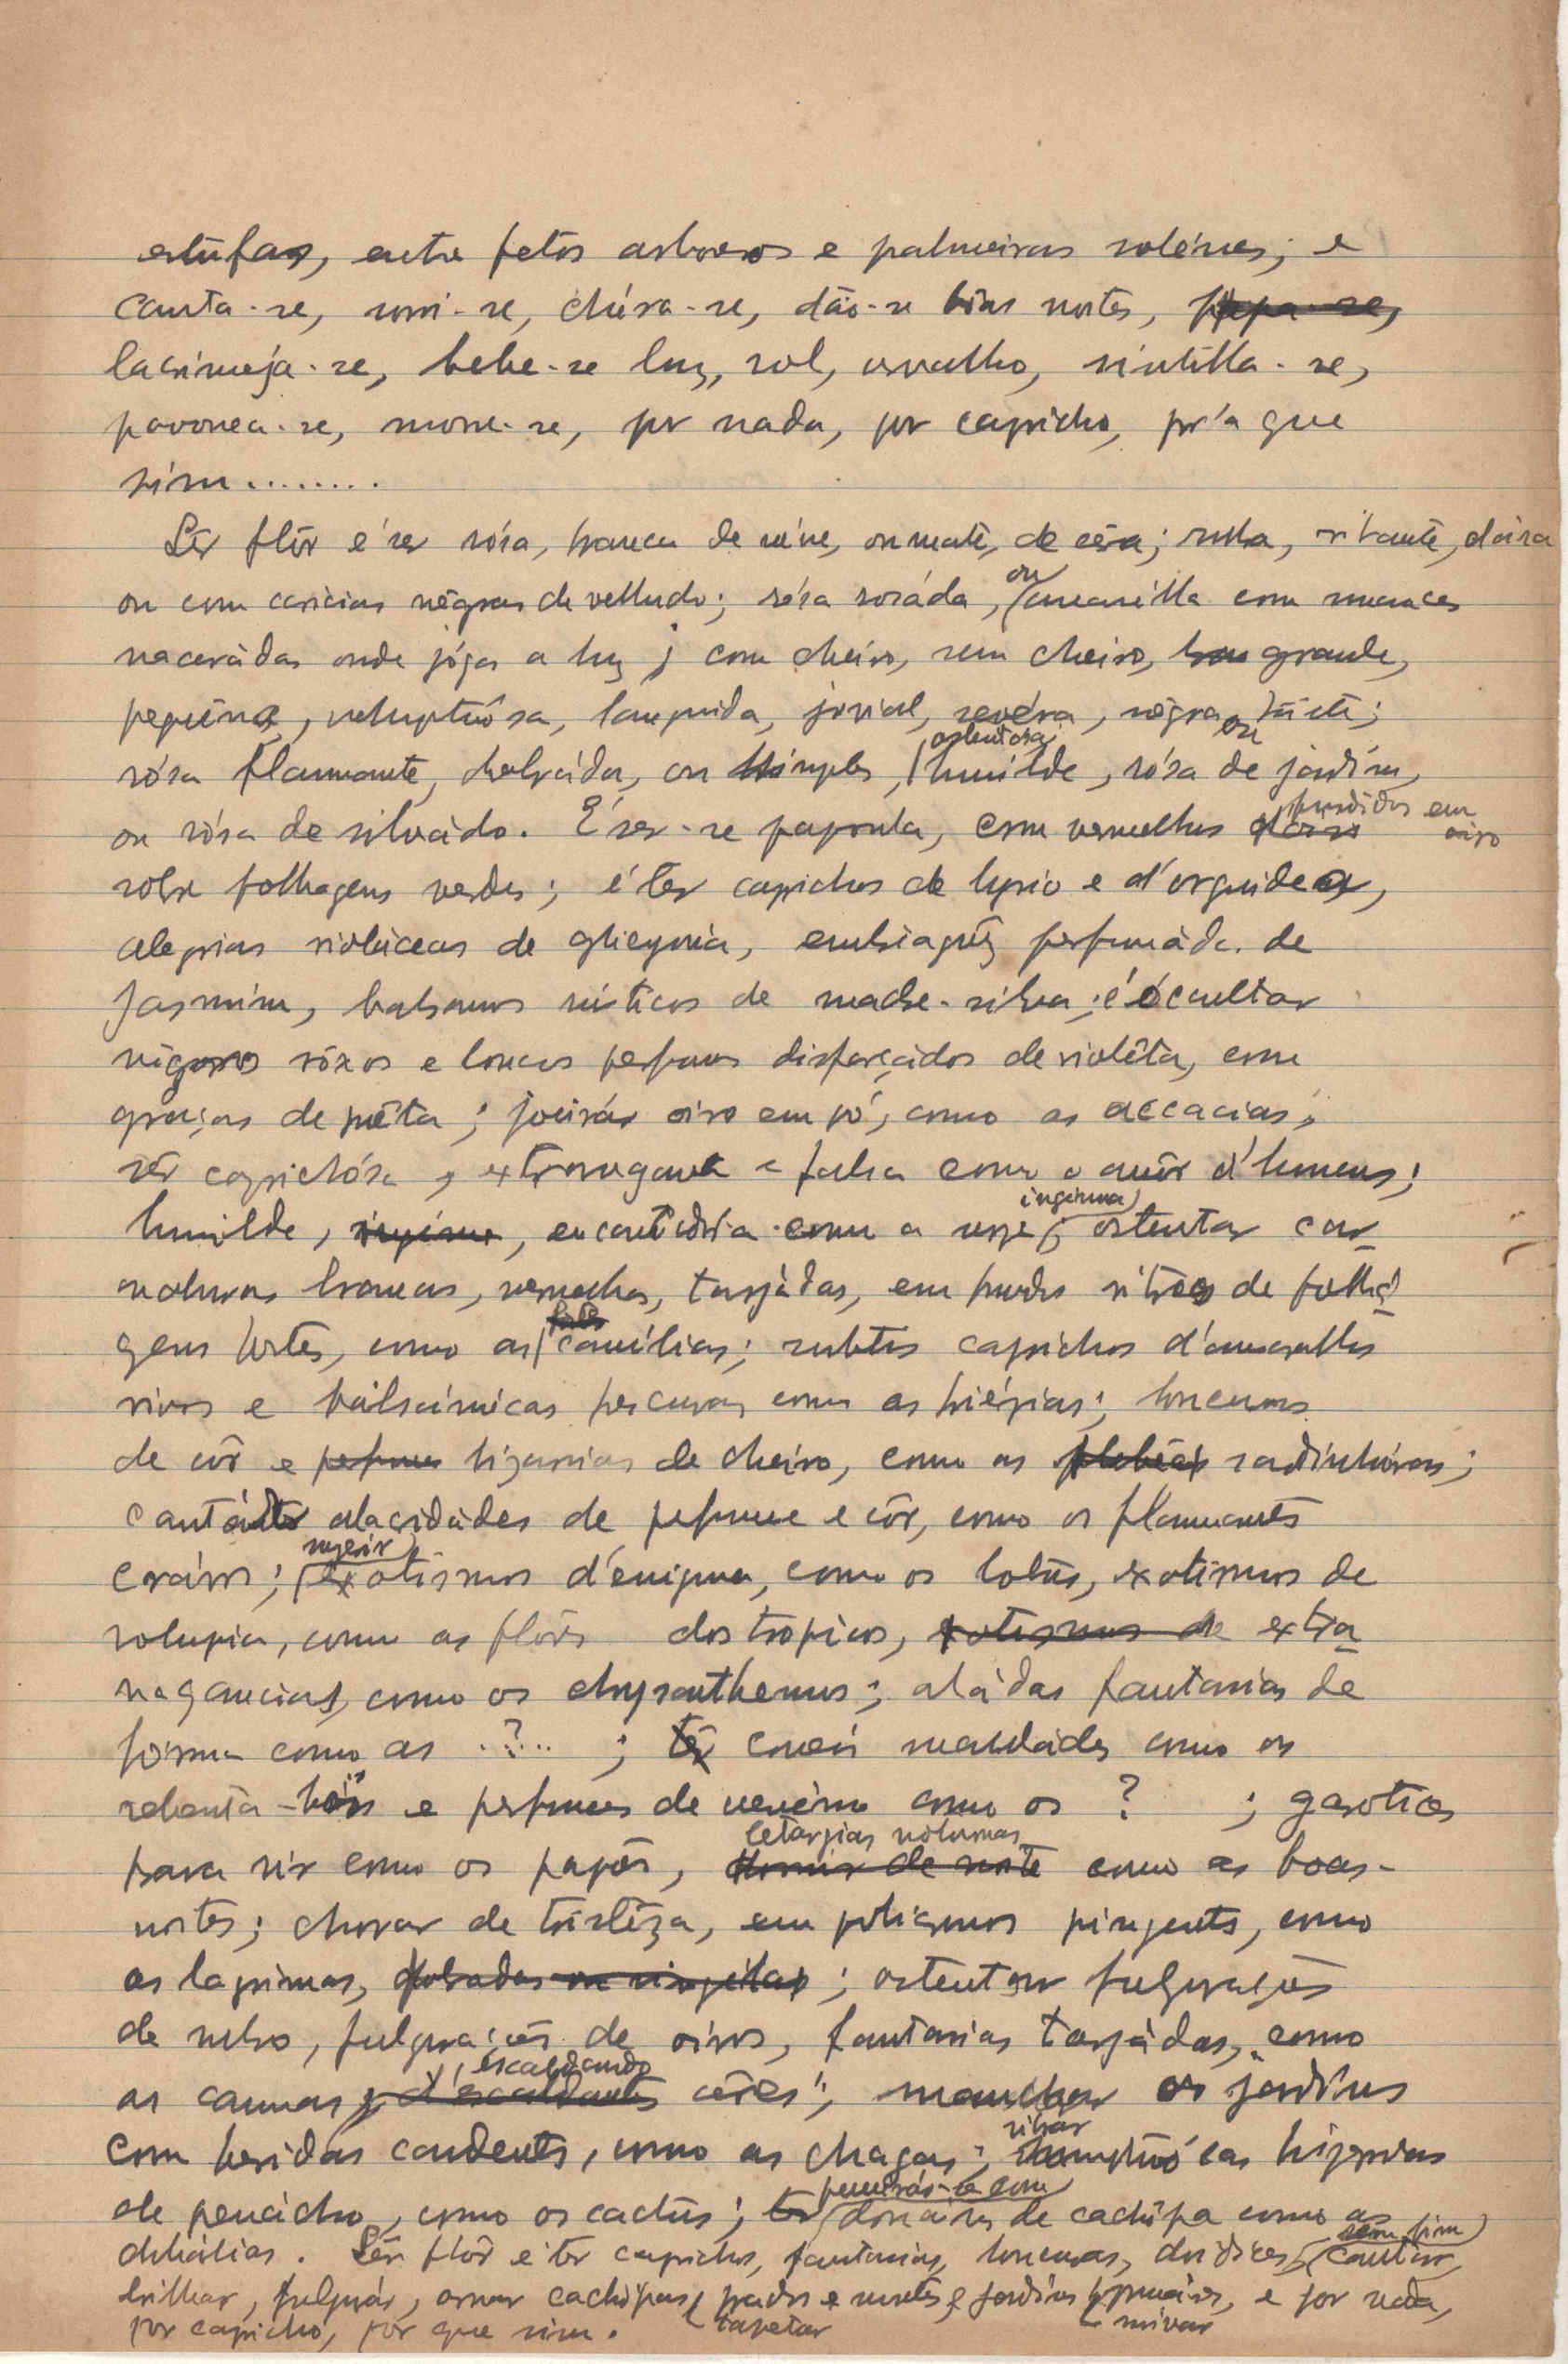 estufas, entre fetos arboreos e palmeiras solénes; e
canta-se, sorri-se, chóra-se, dão-se bôas noites, papa-se,
lacrimeja-se, bebe-se luz, sol, orvalho, sintilla-se,
pavonea-se, morre-se, por nada, por capricho, pr'a que
sim........
Sêr flôr é ser rósa, branca de néve, ou mate, de cêra; rubra, vibrante, doira
ou com caricias négras de velludo; rósa rosáda, ou amarélla com nuances
nacarádas onde jóga a luz; com cheiro, sem cheiro, grande,
pequêna, voluptuósa, languida, jovial, sevéra, négra ou triste;
rósa flammante, dobráda, ou simples, ostentosa humilde, rósa de jardim,
ou rósa de silvádo. É ser-se papoula, com vermelhos fundidos em oiro
sobre folhagens verdes; é ter caprichos de lyrio e d'orquidea,
alegrias violáceas de glicynia, embriaguêz perfumáda de
Jasmim, balsamos rústicos de madre-silva; é occultar
vigores rôxos e loucos perfumes disfarçádos de violêta, com
graças de poêta; joeirár oiro em pó, como as accacias;
sêr caprichósa, extravagante e falsa como o amôr d'homens;
humilde, encantadôra como a urze ingenua; ostentar car-
naduras brancas, vermelhas, tarjádas, em fundos vitreos de folha-
gens fortes, como as camélias; subtis caprichos d'amarellos
vivos e balsâmicas frescuras como as friésias; loucuras
de côr e perfume bizarrias de cheiro, como as plebéas sardinheiras;
cantár alacridádes de perfume e côr, como os flammantes
cravos; sugerir exotismos d'enigma, como os lotus, exotismos de
volupia, como as flôres dos tropicos, exotismos de extra-
vagancias, como os chrysanthemos; aládas fantasias de
fórma como as ..?.. ; ter crueis maldades como os
rebenta-bois e perfumes de venêno como os ? ; garotices
para rir como os papões, letargias nóturnas dormir de noite como as boas-
noites; chorar de tristêza, em poligonos pingentes, como
as lagrimas, ; ostentar fulgurações
de rubro, fulgurações de oiros, fantasias tarjádas, como
as cannas escaldando d'escaldantes côres; manchar os jardins
com feridas candentes, como as chagas; vibrar bizarrias
de penácho, como os cactus; ter com donaires de cachópa como as
dhálias. Sêr flôr é ter caprichos, fantasias, loucuras, doidices, sem fim cantar,
brilhar, fulgurár, ornar cachópas, prados e montes e jardins, e por nada,
por capricho, por que sim. tapetar